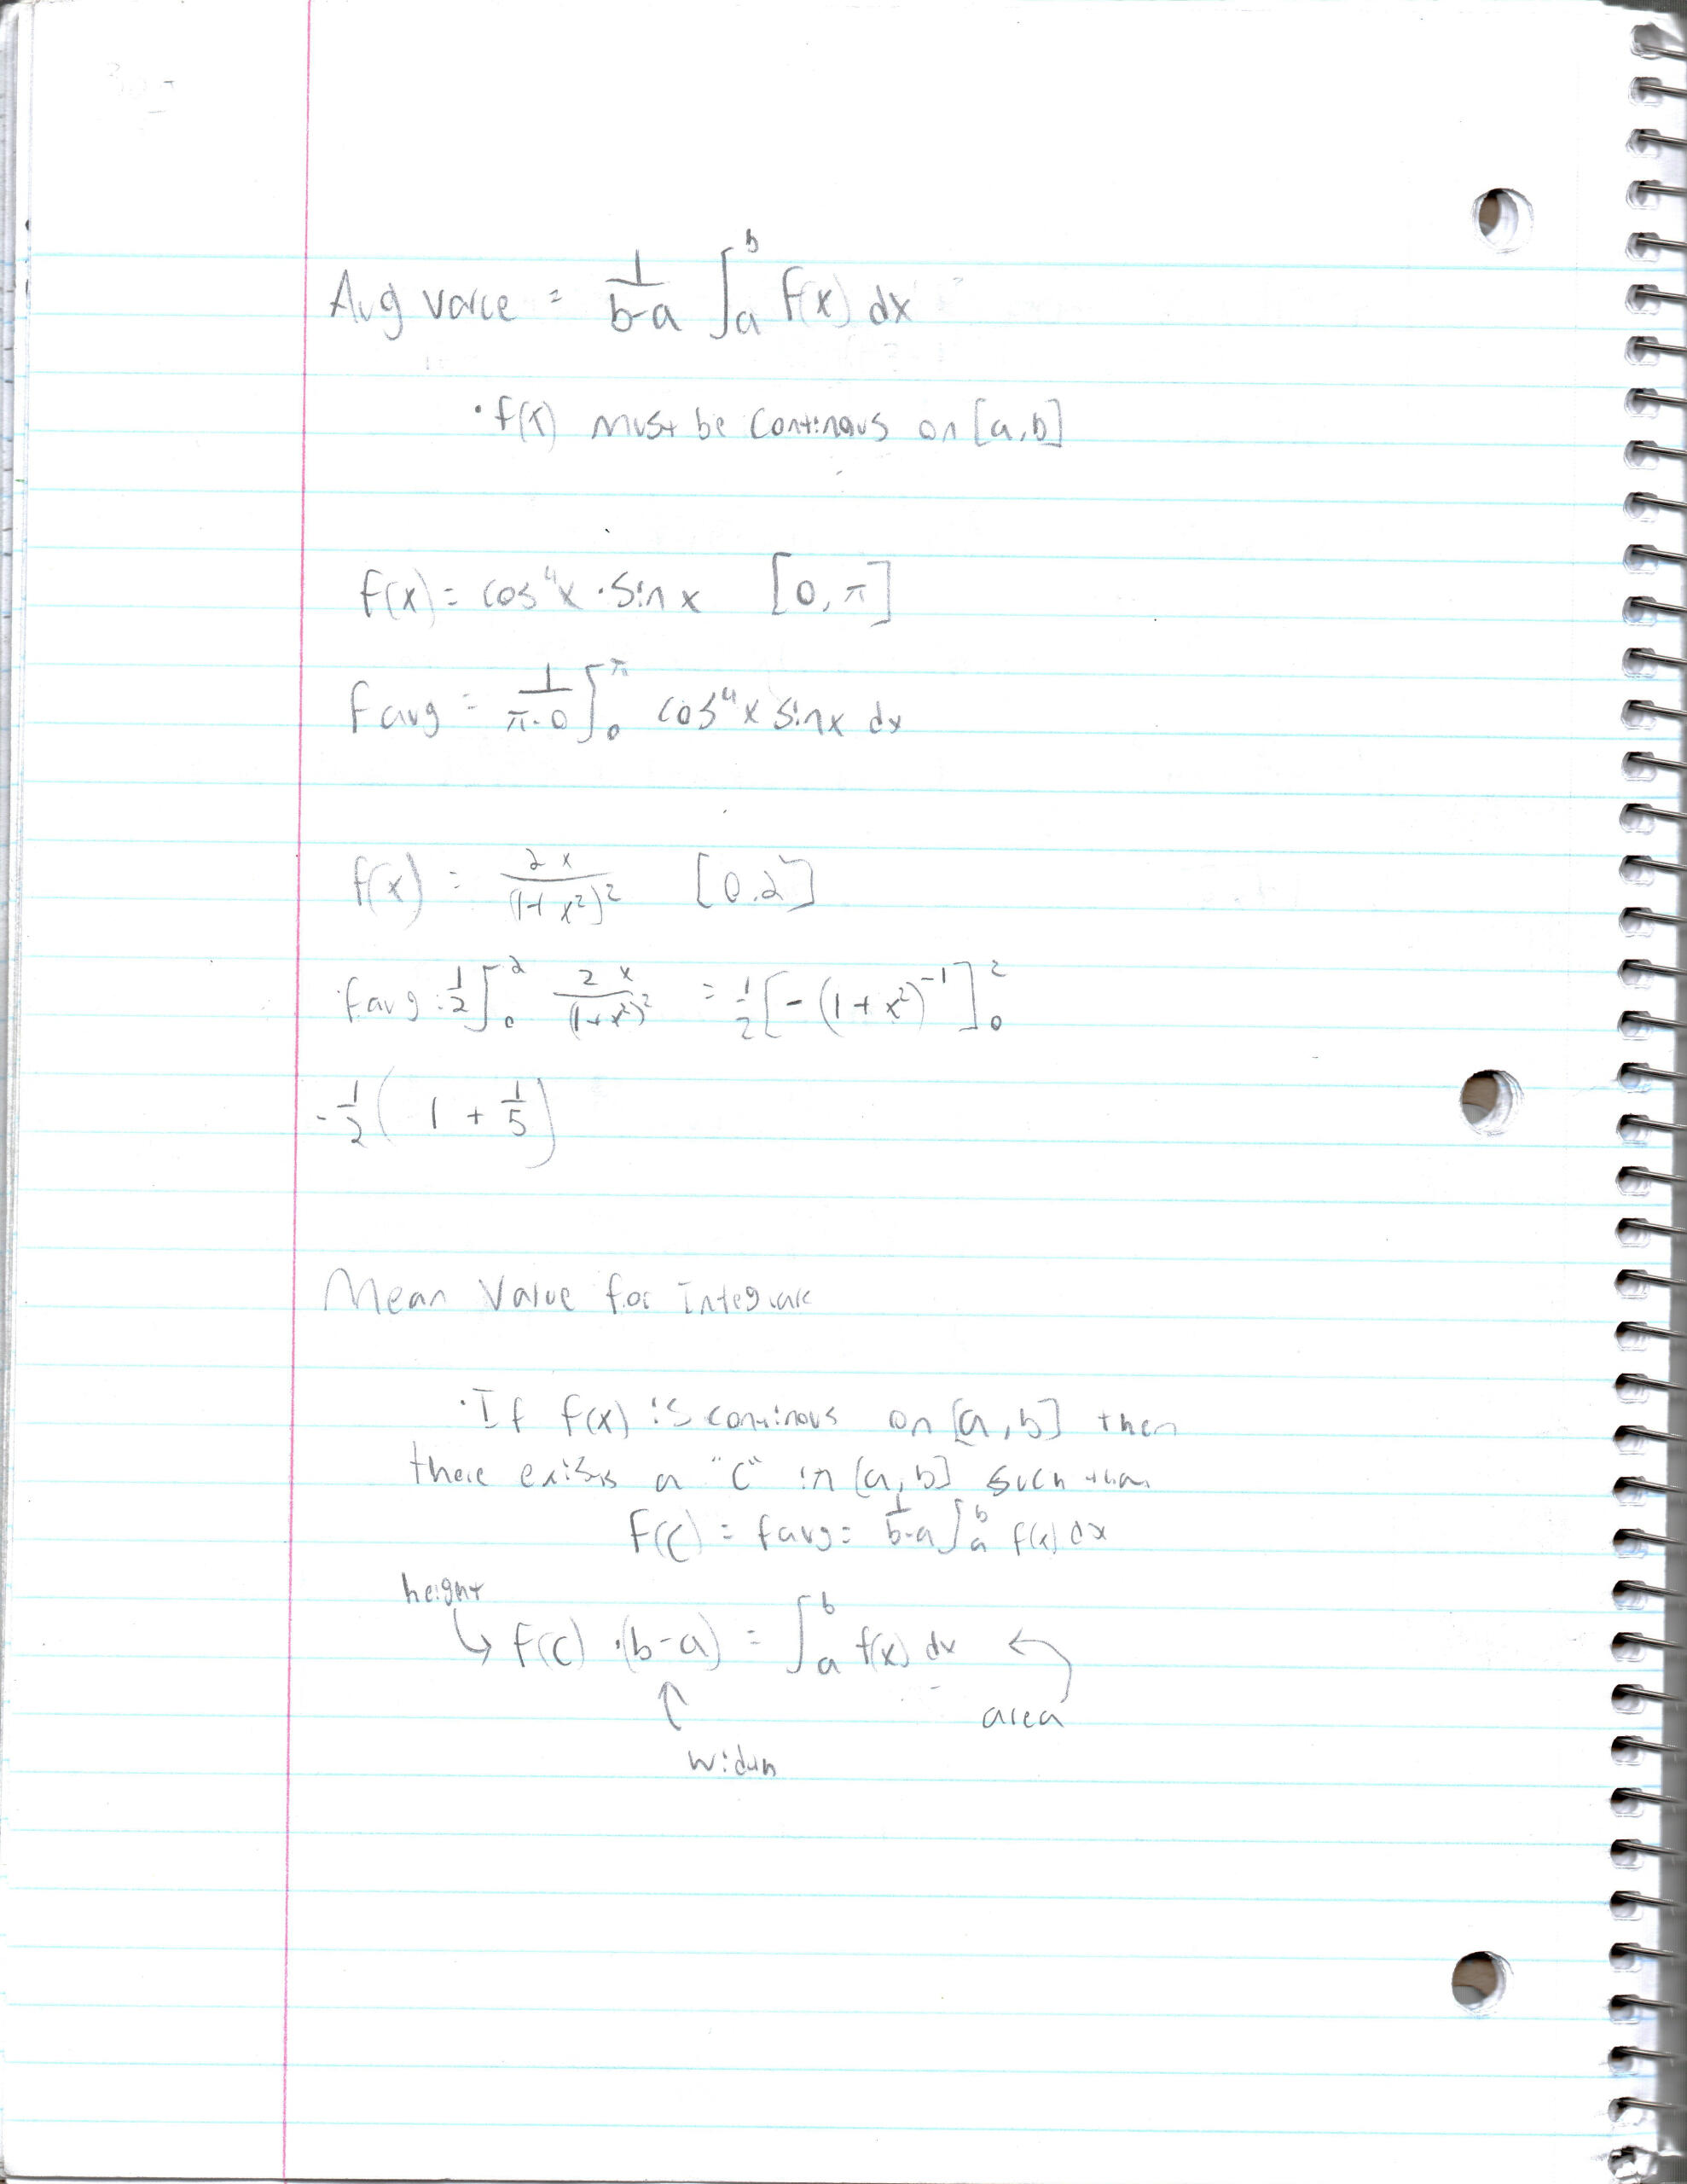 Avg value = 1/(b-a) ∫_a^b f(x) dx
• f(x) must be continous on [a,b]
f(x) = cos⁴x · sin x [0, π]
f avg = 1/(π-0) ∫_0^π cos⁴x sinx dx
f(x) = 2x/(1+x²)² [0,2]
f avg = 1/2 ∫_0^2 2x/(1+x²)² = 1/2 [-(1+x²)⁻¹]_0^2
-1/2 (1 + 1/5)
Mean Value for Integrals
• If f(x) is continous on [a,b] then
there exists a "c" in [a,b] such that
f(c) = f avg = 1/(b-a) ∫_a^b f(x) dx
height
f(c) · (b-a) = ∫_a^b f(x) dx
area
width